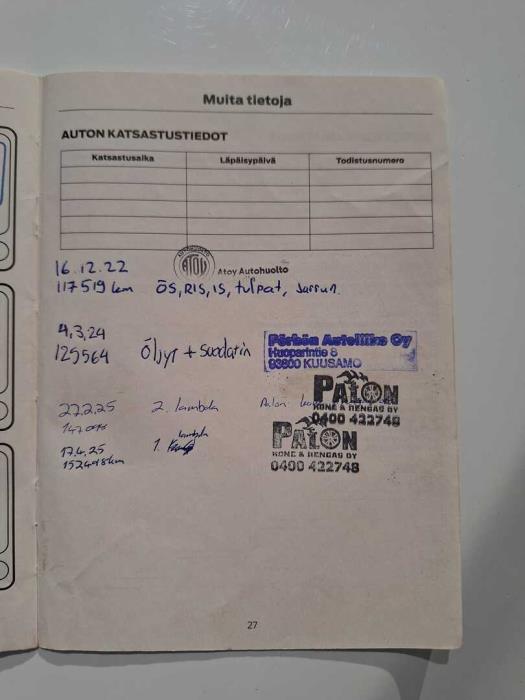 Muita tietoja
AUTON KATSASTUSTIEDOT
Katsastusaika Läpäisypäivä Todistusnumero
16.12.22 ATOY Atoy Autohuolto
117519 km ÖS, RIS, IS, tulpat,
4,3,24 Pärhön Autoliike Oy
125564 Öljyt + Suodatin Huoparintie 5
93600 KUUSAMO
27.2.25 2. lambda PALON
KONE & RENGAS OY
0400 422748
17.4.25 1. lambda PALON
KONE & RENGAS OY
0400 422748
27